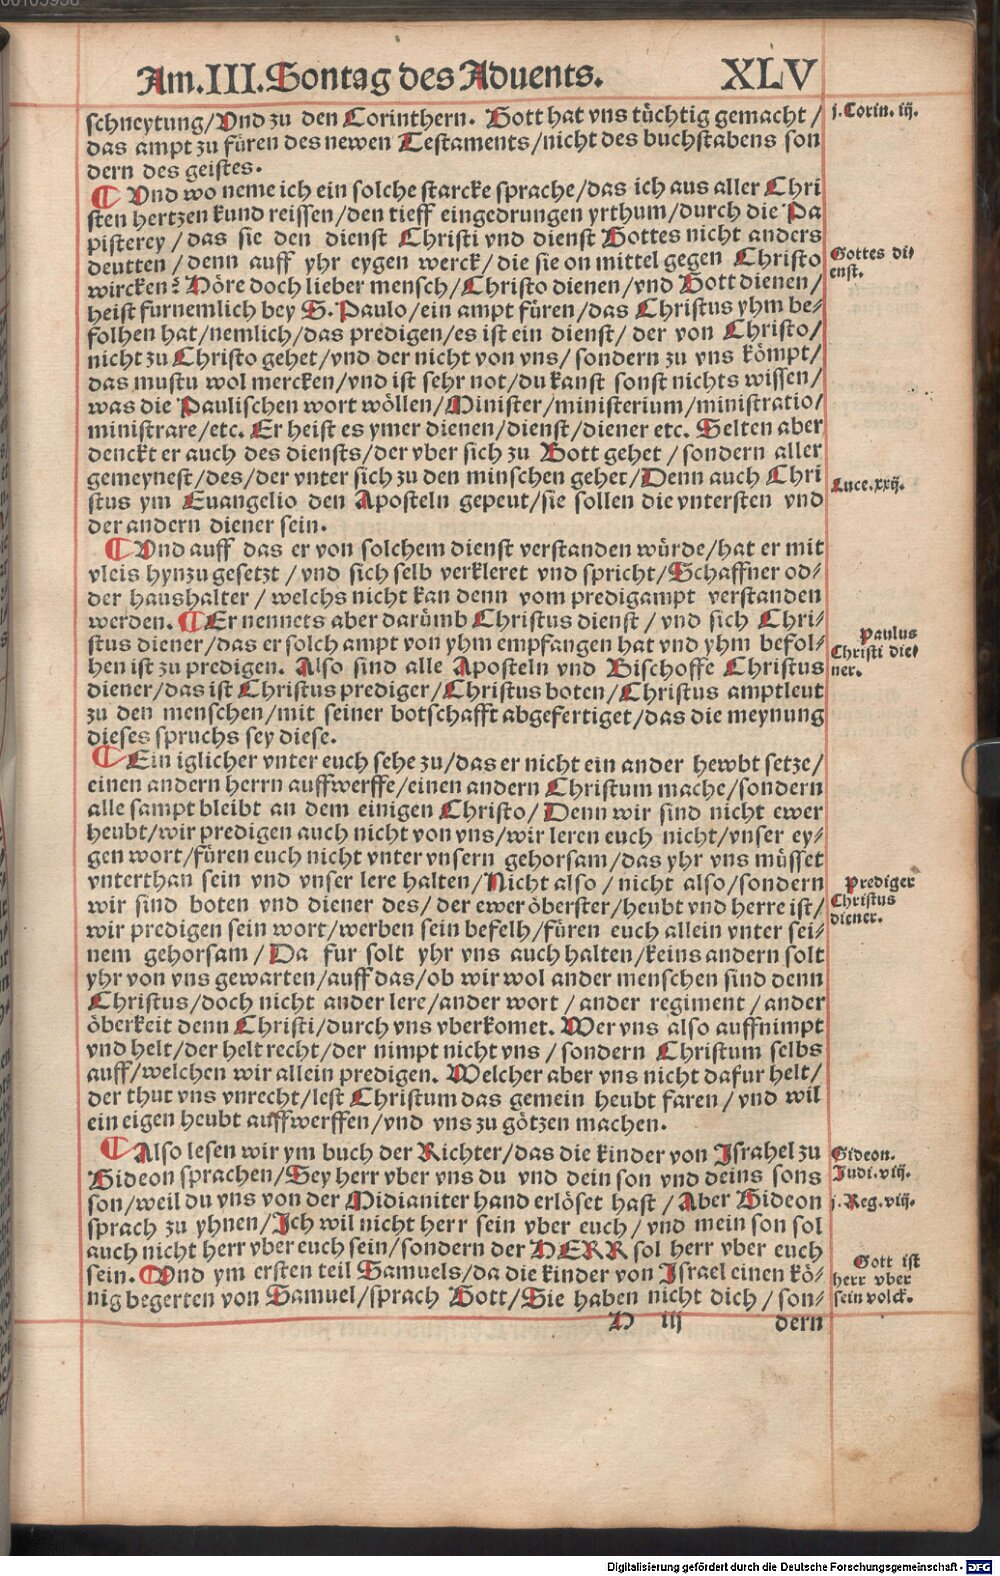 Am. III. Sontag des Aduents. XLV
schneytung/Vnd zu den Corinthern. Gott hat vns tüchtig gemacht/
j. Corin. iij.
das ampt zu füren des newen Testaments/nicht des buchstabens son
dern des geistes.
¶ Vnd wo neme ich ein solche starcke sprache/das ich aus aller Chri
sten hertzen kund reissen/den tieff eingedrungen yrthum/durch die Pa
pisterey/das sie den dienst Christi vnd dienst Gottes nicht anders
Gottes di/
deutten/denn auff yhr eygen werck/die sie on mittel gegen Christo
enst.
wircken? Höre doch lieber mensch/Christo dienen/vnd Gott dienen/
heist furnemlich bey S. Paulo/ein ampt füren/das Christus yhm be-
folhen hat/nemlich/das predigen/es ist ein dienst/der von Christo/
nicht zu Christo gehet/vnd der nicht von vns/sondern zu vns kömpt/
das mustu wol mercken/vnd ist sehr not/du kanst sonst nichts wissen/
was die Paulischen wort wöllen/Minister/ministerium/ministratio/
ministrare/etc. Er heist es ymer dienen/dienst/diener etc. Selten aber
denckt er auch des diensts/der vber sich zu Gott gehet/sondern aller
gemeynest/des/der vnter sich zu den minschen gehet/Denn auch Chri
Luce. xxij.
stus ym Euangelio den Aposteln gepeut/sie sollen die vntersten vnd
der andern diener sein.
¶ Vnd auff das er von solchem dienst verstanden würde/hat er mit
vleis hynzu gesetzt/vnd sich selb verkleret vnd spricht/Schaffner od/
der haushalter/welchs nicht kan denn vom predigampt verstanden
werden. ¶ Er nennets aber darümb Christus dienst/vnd sich Chri/
stus diener/das er solch ampt von yhm empfangen hat vnd yhm befol/
Paulus
Christi die/
hen ist zu predigen. Also sind alle Aposteln vnd Bischoffe Christus
ner.
diener/das ist Christus prediger/Christus boten/Christus amptleut
zu den menschen/mit seiner botschafft abgefertiget/das die meynung
dieses spruchs sey diese.
¶ Ein iglicher vnter euch sehe zu/das er nicht ein ander hewbt setze/
einen andern herrn auffwerffe/einen andern Christum mache/sondern
alle sampt bleibt an dem einigen Christo/Denn wir sind nicht ewer
heubt/wir predigen auch nicht von vns/wir leren euch nicht/vnser ey/
gen wort/füren euch nicht vnter vnsern gehorsam/das yhr vns müsset
vnterthan sein vnd vnser lere halten/Nicht also/nicht also/sondern
Prediger
wir sind boten vnd diener des/der ewer öberster/heubt vnd herre ist/
Christus
diener.
wir predigen sein wort/werben sein befelh/füren euch allein vnter sei/
nem gehorsam/Da fur solt yhr vns auch halten/keins andern solt
yhr von vns gewarten/auff das/ob wir wol ander menschen sind denn
Christus/doch nicht ander lere/ander wort/ander regiment/ander
öberkeit denn Christi/durch vns vberkomet. Wer vns also auffnimpt
vnd helt/der helt recht/der nimpt nicht vns/sondern Christum selbs
auff/welchen wir allein predigen. Welcher aber vns nicht dafur helt/
der thut vns vnrecht/lest Christum das gemein heubt faren/vnd wil
ein eigen heubt auffwerffen/vnd vns zu götzen machen.
¶ Also lesen wir ym buch der Richter/das die kinder von Israhel zu
Gideon.
Gideon sprachen/Sey herr vber vns du vnd dein son vnd deins sons
Iudi. viij.
son/weil du vns von der Midianiter hand erlöset hast/Aber Gideon
j. Reg. viij.
sprach zu yhnen/Ich wil nicht herr sein vber euch/vnd mein son sol
auch nicht herr vber euch sein/sondern der HERR sol herr vber euch
Gott ist
sein. ¶ Vnd ym ersten teil Samuels/da die kinder von Israel einen kö/
herr vber
nig begerten von Samuel/sprach Gott/Sie haben nicht dich/son/
sein volck.
H iij dern
Digitalisierung gefördert durch die Deutsche Forschungsgemeinschaft - DFG